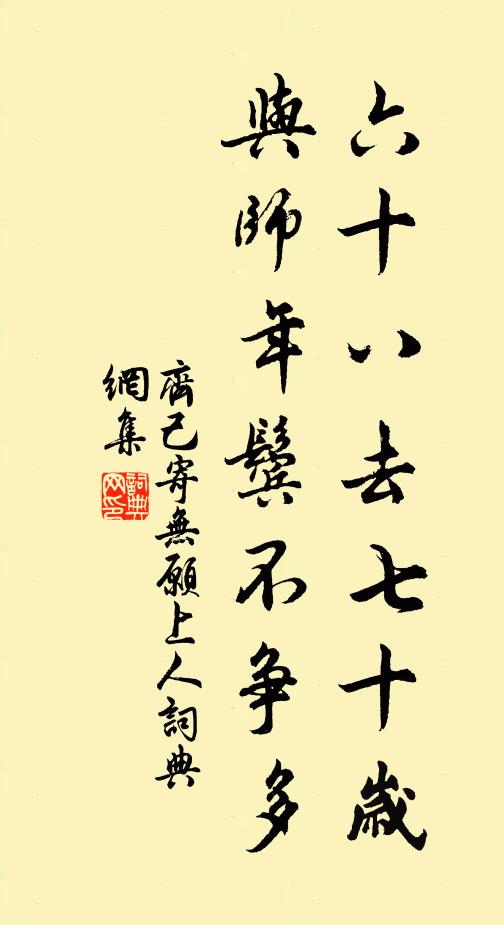 六十八去七十歲
與師年鬢不爭多
齊己寄無願上人詞典
網集
詞典網印